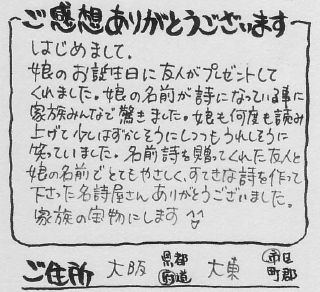 ご感想ありがとうございます
はじめまして.
娘のお誕生日に友人がプレゼントして
くれました。娘の名前が詩になっている事に
家族みんなで驚きました。娘も何度も読み
上げて少しはずかしそうにしつつもうれしそうに
笑っていました。名前詩を贈ってくれた友人と
娘の名前でとてもやさしく、すてきな詩を作って
下さった名詩屋さんありがとうございました。
家族の宝物にします^^
ご住所 大阪 県都府道 大東 市区町郡